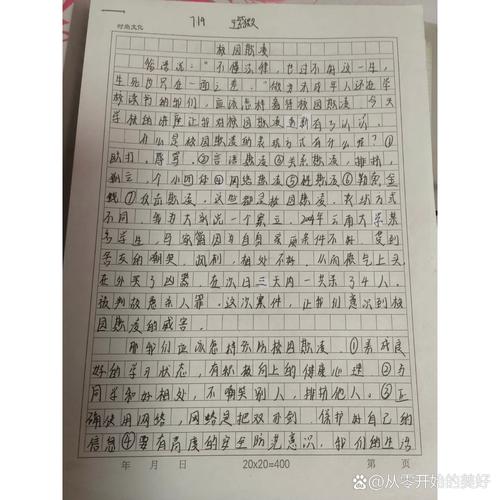 时尚文化
719
校园欺凌
俗话说:"不懂法律,也过不好这一生,
生死也只在一面之差。"做为未成年人还在学
校读书的我们,应该怎样看待校园欺凌 今天
学校的讲座让我对校园欺凌重新有了认识。
什么是校园欺凌的表现方式有什么呢?①
殴打,辱骂。②言语欺凌③关系欺凌,排挤,
孤立,个小团体④网络欺凌⑤性欺凌⑥勒索金
钱⑦反击欺凌。这些都是校园欺凌,表现方式
不同,我为大家说一个案子,2004年云南大学某
名学生,因家庭因自身条件不好,受到
舍友的嘲笑,讽刺,相处不好,从而怒气上头
在外买了凶器,在次日三天内一共杀了4人,
被判故意杀人罪。这次案件,让我们意识到校
园欺凌的威害。
那我们应该怎样去防校园欺凌,①养成良
好的学习状态,有积极向上的健康心理②与
同学和好相处,不嘲笑别人,排挤他人。③正
确使用网络,网络是把双刃剑,保护好自己的
信息④要有高度的安全防范意识,我们的生活
年 月 日 20×20=400 第 页
@从零开始的美好